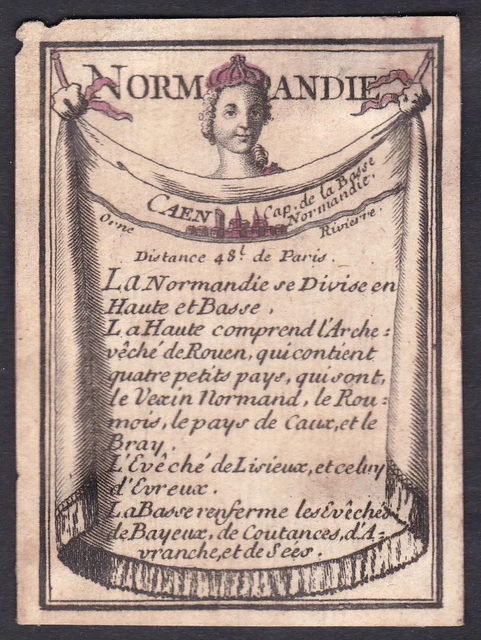 NORMANDIE
CAEN Cap. de la Basse
Normandie.
Orne Rivierre.
Distance 48 l. de Paris.
La Normandie se Divise en
Haute et Basse,
La Haute comprend l'Arche:
vêché de Rouen, qui contient
quatre petits pays, qui sont,
le Vexin Normand, le Rou:
mois, le pays de Caux, et le
Bray.
L'Evêché de Lisieux, et celuy
d'Evreux.
La Basse renferme les Evêchés
de Bayeux, de Coutances, d'A-
vranche, et de Sées.